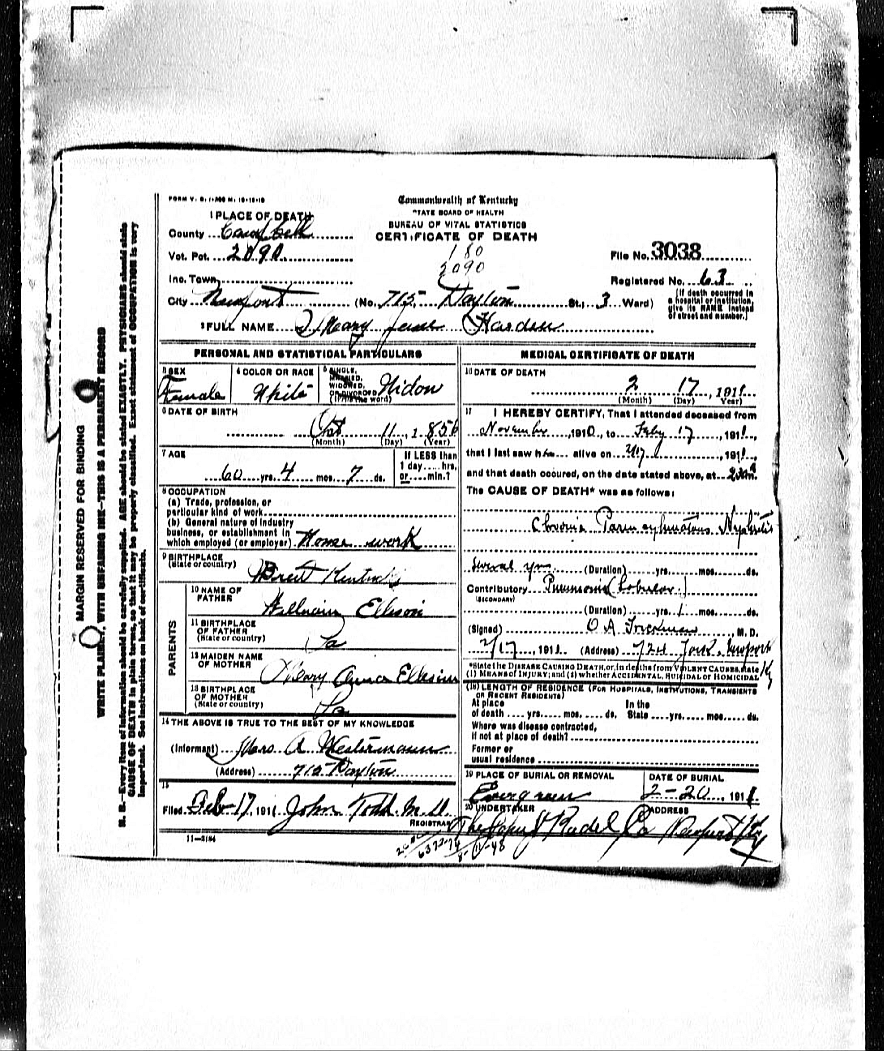 FORM V. S. 1-200 M. 10-15-10
Commonwealth of Kentucky
STATE BOARD OF HEALTH
BUREAU OF VITAL STATISTICS
CERTIFICATE OF DEATH
1 PLACE OF DEATH
County Campbell
Vot. Pct. 2090
180
2090
File No. 3038
Inc. Town
Registered No. 63
City Newport (No. 715 Dayton St.; 3 Ward)
(If death occurred in a hospital or institution, give its NAME instead of street and number.)
2 FULL NAME Mary Jane Harden
PERSONAL AND STATISTICAL PARTICULARS
3 SEX Female
4 COLOR OR RACE White
5 SINGLE, MARRIED, WIDOWED, OR DIVORCED (Write the word) Widow
6 DATE OF BIRTH
Oct 11, 1850
(Month) (Day) (Year)
7 AGE
60 yrs. 4 mos. 7 ds.
If LESS than 1 day.....hrs. or.....min.?
8 OCCUPATION
(a) Trade, profession, or particular kind of work
(b) General nature of industry business, or establishment in which employed (or employer) House work
9 BIRTHPLACE
(State or country) Kentucky
PARENTS
10 NAME OF FATHER William Ellison
11 BIRTHPLACE OF FATHER (State or country)
12 MAIDEN NAME OF MOTHER Mary
13 BIRTHPLACE OF MOTHER (State or country)
14 THE ABOVE IS TRUE TO THE BEST OF MY KNOWLEDGE
(Informant) Mrs. A Westermann
(Address) 715 Dayton
15
Filed Feb 17, 1911 John Todd M.D.
REGISTRAR
11-2184
MEDICAL CERTIFICATE OF DEATH
16 DATE OF DEATH
2 17, 1911
(Month) (Day) (Year)
17 I HEREBY CERTIFY, That I attended deceased from
November, 1910, to Feby 17, 1911,
that I last saw h alive on 1911,
and that death occured, on the date stated above, at 230 m
The CAUSE OF DEATH* was as follows:
Chronic Parenchymatous Nephritis
several yrs (Duration) yrs. mos. ds.
Contributory Pneumonia (Lobular)
(SECONDARY)
(Duration) yrs. 1 mos. ds.
(Signed) O A M. D.
2/17, 1911 (Address) 724 York, Newport Ky
*State the DISEASE CAUSING DEATH, or, in deaths from VIOLENT CAUSES, state (1) MEANS OF INJURY; and (2) whether ACCIDENTAL, SUICIDAL or HOMICIDAL
(18) LENGTH OF RESIDENCE (FOR HOSPITALS, INSTITUTIONS, TRANSIENTS OR RECENT RESIDENTS)
At place of death yrs. mos. ds. In the State yrs. mos. ds.
Where was disease contracted, if not at place of death?
Former or usual residence
19 PLACE OF BURIAL OR REMOVAL Evergreen
DATE OF BURIAL 2-20, 1911
20 UNDERTAKER The John J Radel Co
ADDRESS Newport Ky
MARGIN RESERVED FOR BINDING
WRITE PLAINLY, WITH UNFADING INK—THIS IS A PERMANENT RECORD
N. B.—Every item of information should be carefully supplied. AGE should be stated EXACTLY. PHYSICIANS should state
CAUSE OF DEATH in plain terms, so that it may be properly classified. Exact statement of OCCUPATION is very
important. See instructions on back of certificate.